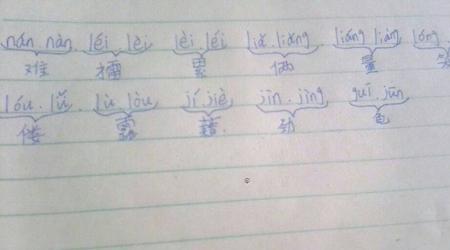 nán nàn. léi lèi lèi. léi liǎ. liǎng liáng liàng lóng.
难 擂 累 俩 量
lóu. lǚ lù. lòu jí. jiè jìn. jìng guī jūn
偻 露 藉 劲 龟